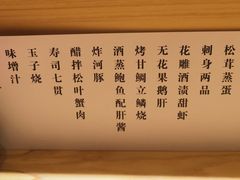 松茸蒸蛋
刺身两品
花雕酒渍甜虾
无花果鹅肝
烤甘鲷立鳞烧
酒蒸鲍鱼配肝酱
炸河豚
醋拌松叶蟹肉
寿司七贯
玉子烧
味增汁